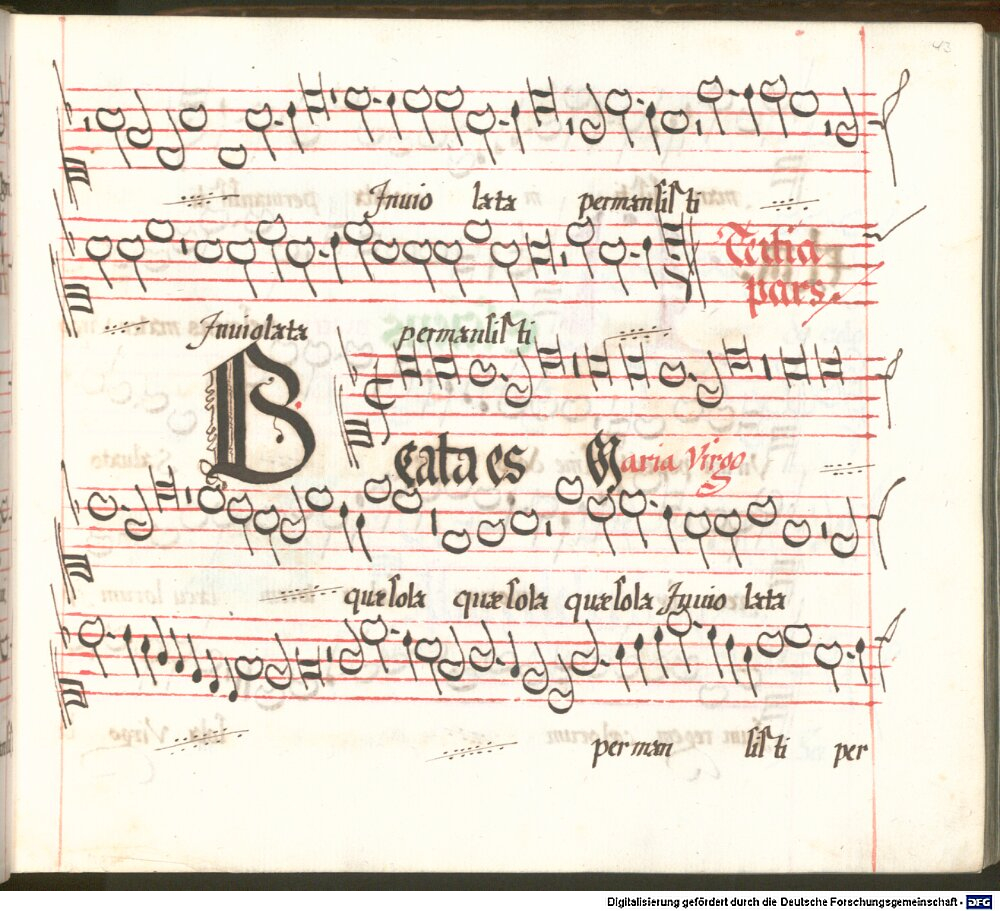 43
Inuio lata permansisti
Tertia
pars.
Inuiolata permansisti
Beata es Maria Virgo
quæ sola quæ sola quæ sola Inuio lata
per man sisti per
Digitalisierung gefördert durch die Deutsche Forschungsgemeinschaft - DFG